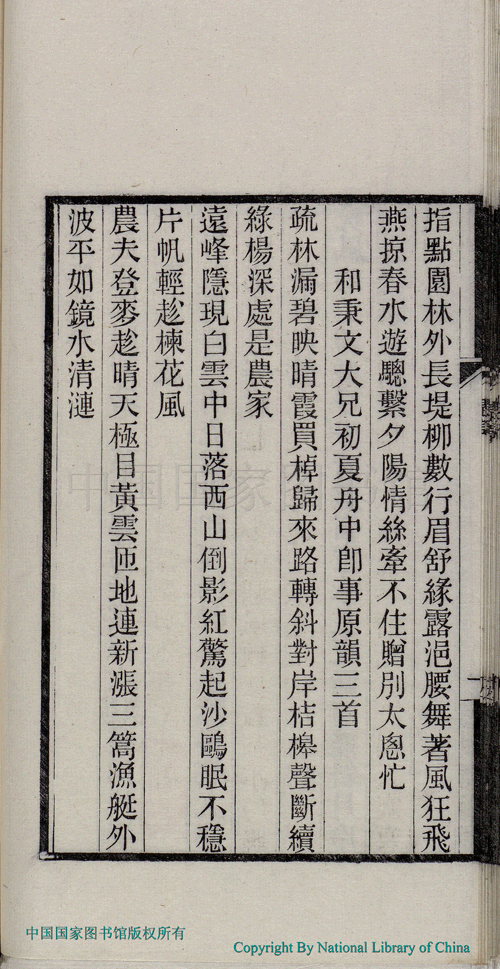 指點園林外長堤柳數行眉舒緣露浥腰舞著風狂飛
燕掠春水遊驄繫夕陽情絲牽不住贈別太悤忙
和秉文大兄初夏舟中即事原韻三首
疏林漏碧映晴霞買棹歸來路轉斜對岸桔槔聲斷續
綠楊深處是農家
遠峰隱現白雲中日落西山倒影紅驚起沙鷗眠不穩
片帆輕趁楝花風
農夫登麥趁晴天極目黃雲匝地連新漲三篙漁艇外
波平如鏡水清漣
中国国家图书馆版权所有
Copyright By National Library of China